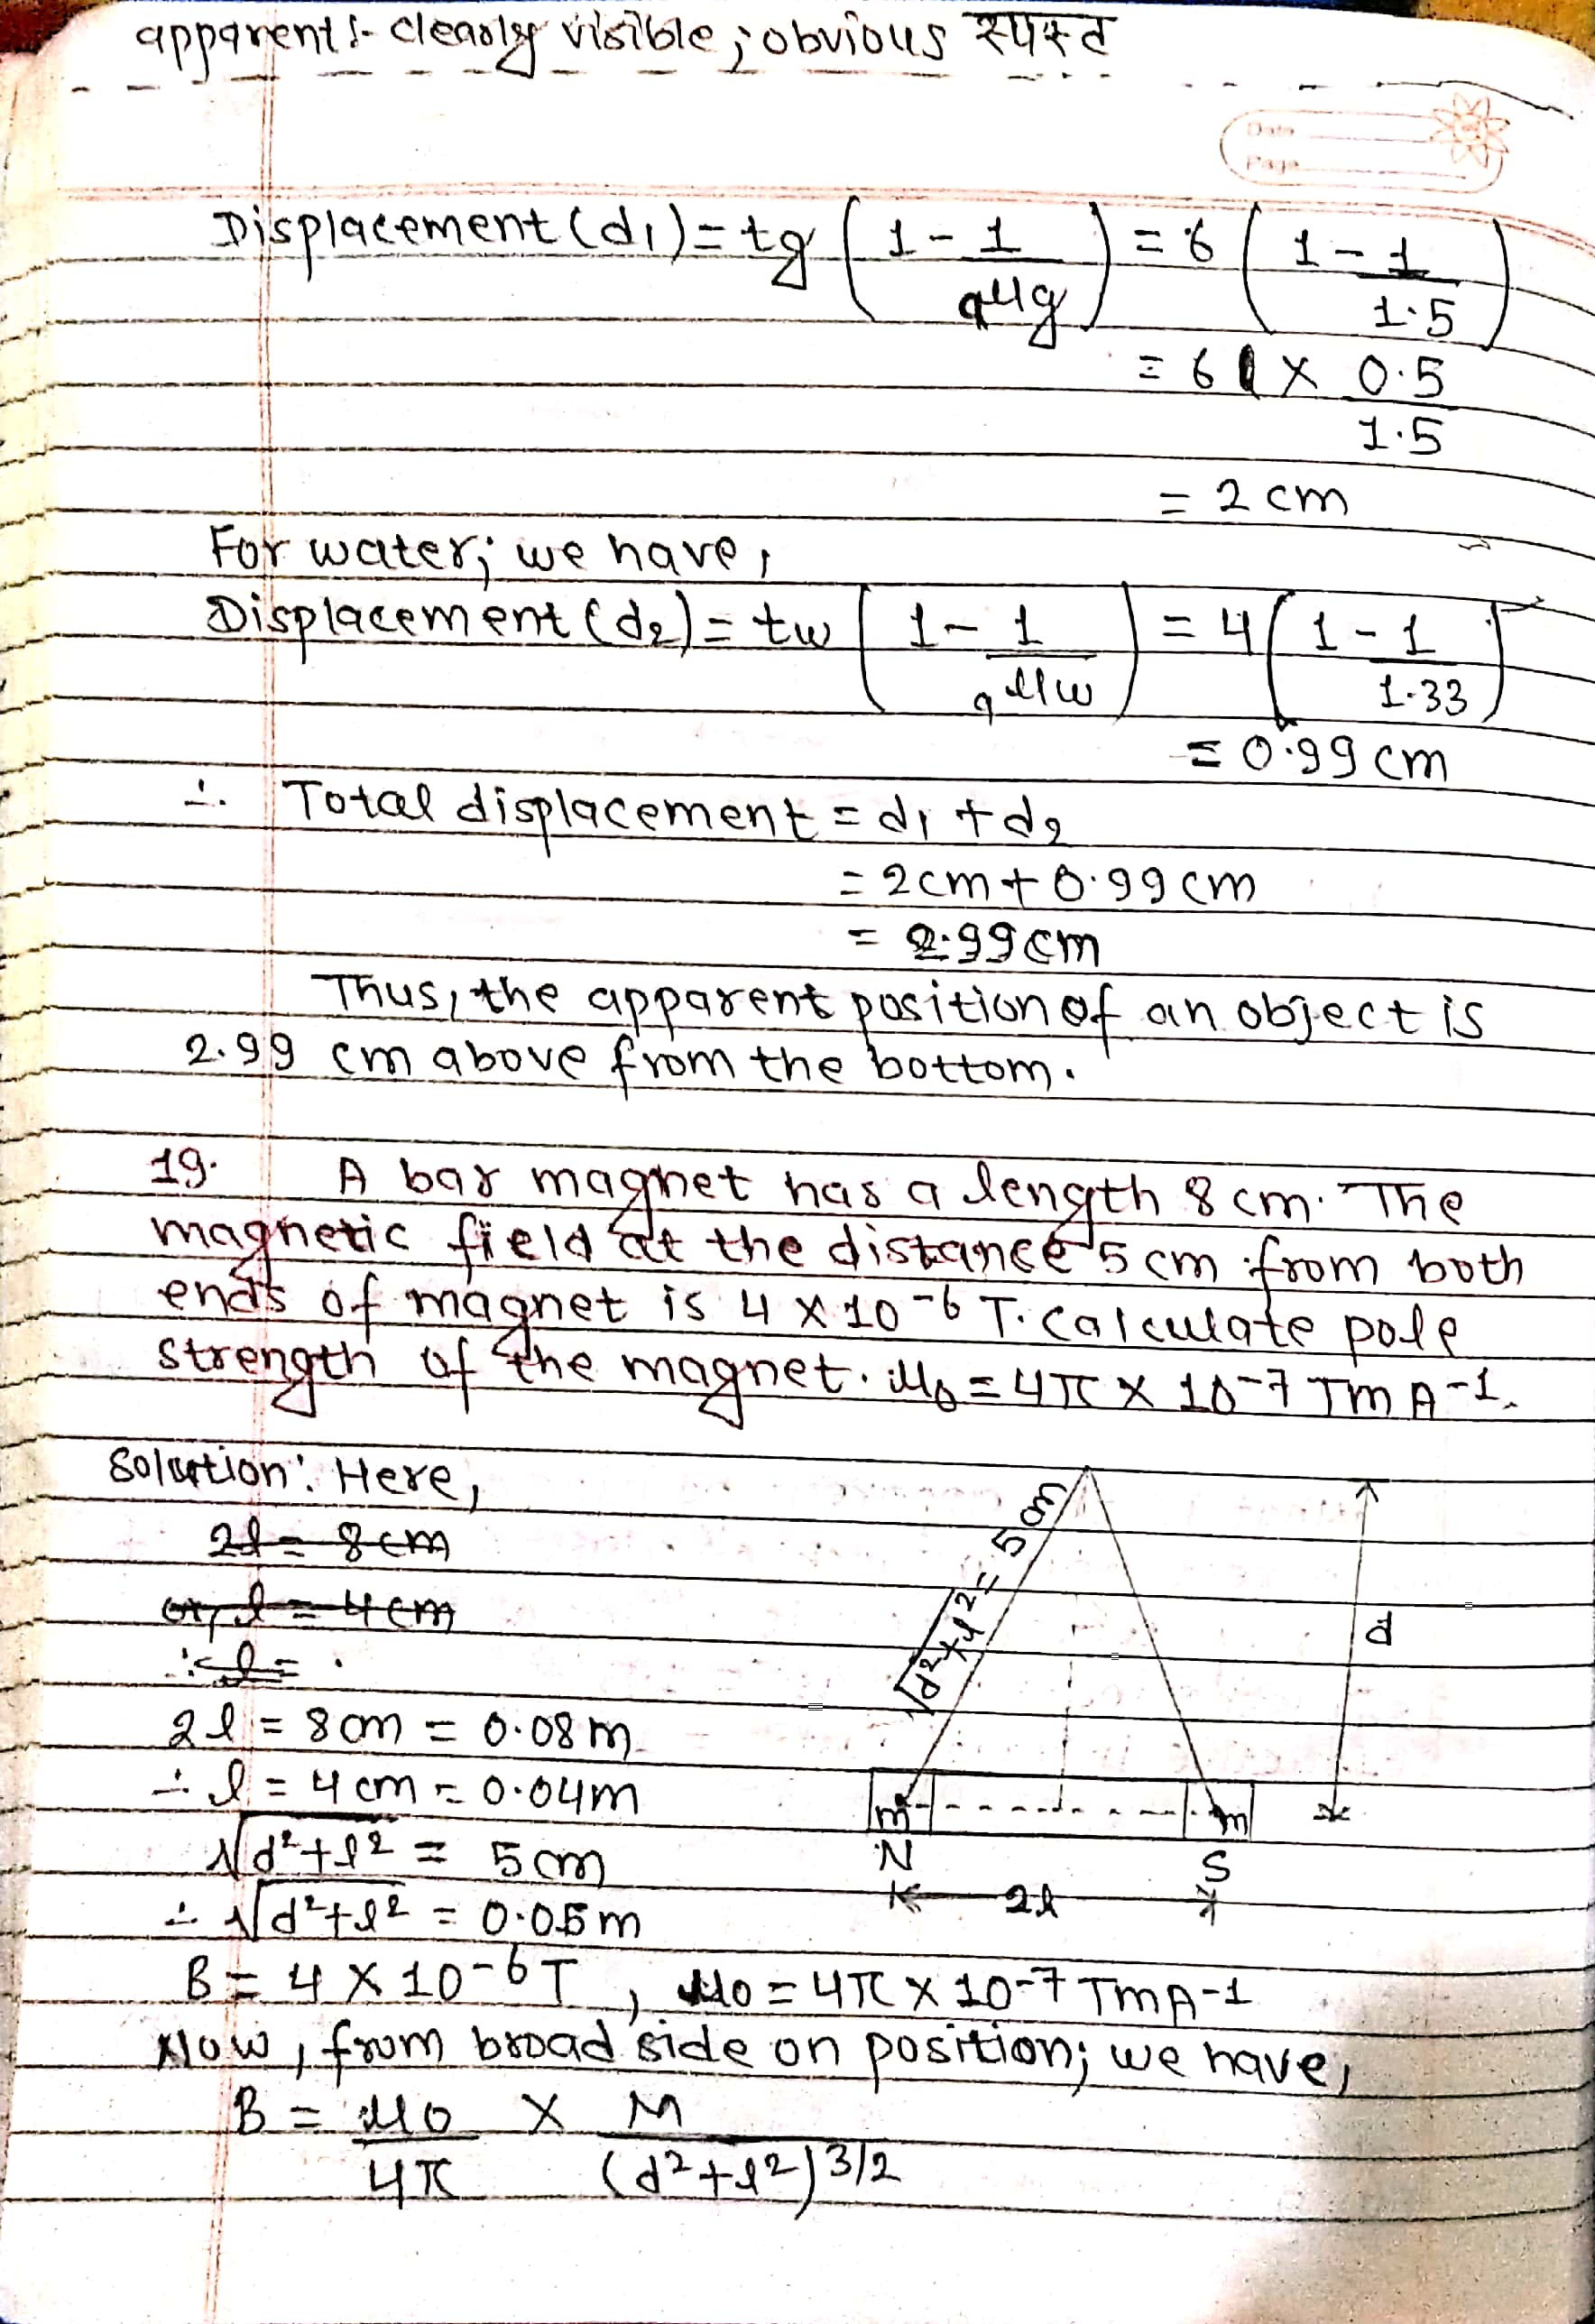 apparent :- clearly visible ; obvious स्पस्त
Date
Page
Displacement (d₁) = tg ( 1 - 1/aμg ) = 6 ( 1 - 1/1.5 )
= 6 × 0.5/1.5
= 2 cm
For water; we have,
Displacement (d₂) = tw ( 1 - 1/aμw ) = 4 ( 1 - 1/1.33 )
= 0.99 cm
∴ Total displacement = d₁ + d₂
= 2cm + 0.99 cm
= 2.99 cm
Thus, the apparent position of an object is
2.99 cm above from the bottom.
19. A bar magnet has a length 8 cm. The
magnetic field at the distance 5 cm from both
ends of magnet is 4 × 10⁻⁶ T. Calculate pole
strength of the magnet. μ₀ = 4π × 10⁻⁷ TmA⁻¹.
Solution: Here,
2l = 8cm
or, l = 4cm
∴ l =
2l = 8cm = 0.08m
∴ l = 4cm = 0.04m
√d²+l² = 5cm
∴ √d²+l² = 0.05m
√d²+l² = 5 cm
d
m
m
N
S
2l
B = 4 × 10⁻⁶ T, μ₀ = 4π × 10⁻⁷ TmA⁻¹
Now, from broad side on position; we have,
B = μ₀/4π × M/(d²+l²)^3/2